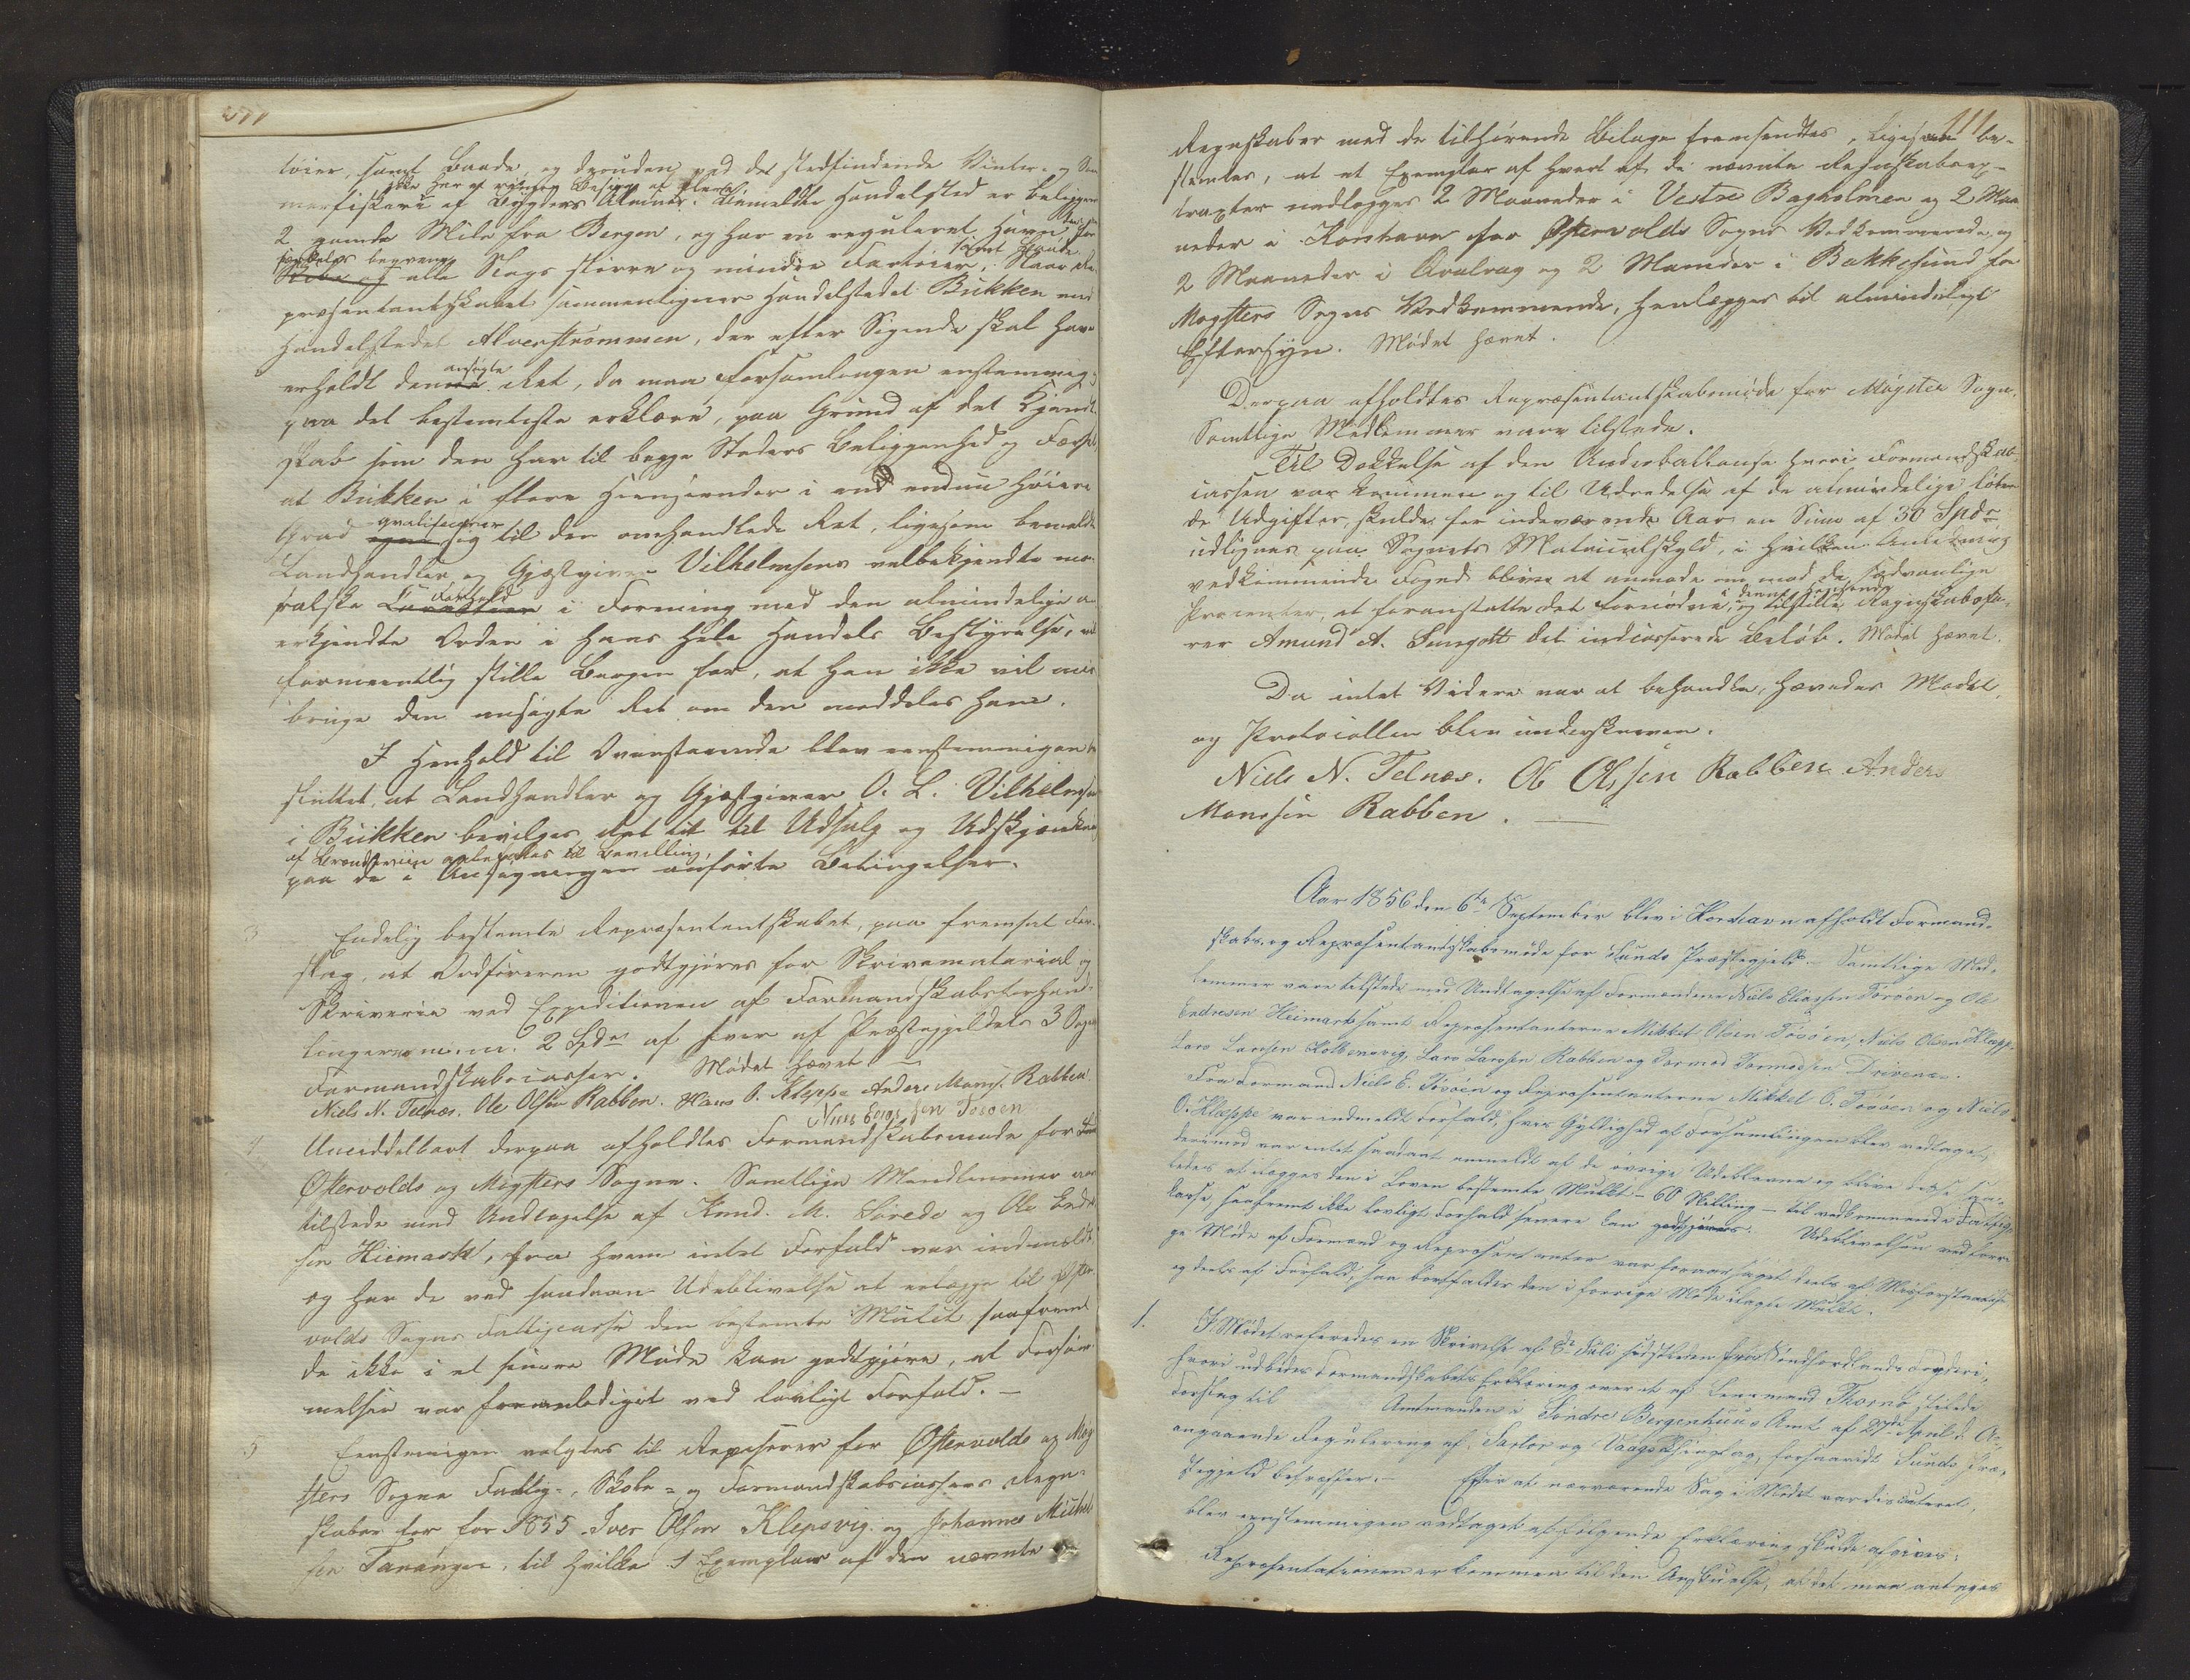 tøier, samt Baade og desuden ved det stedfindende Vinter- og Som
ikke har at vente Besøg af flere
merfiskeri af Bygdens Almue. Bemeldte Handelssted er beliggende
2 gamle Mile fra Bergen, og har en reguleret Havn
særdeles beqvem samt
alle Slags større og mindre Fartøier; Naar Re-
præsentantskabet sammenligner Handelsstedet Bukken med
Handelsstedet Alverstrømmen, der efter Sigende skal have
ansøgte
erholdt denne Ret, da maa Forsamlingen enstemmig
paa det bestemteste erklære, paa Grund af det Kjend-
skab som den har til begge Steders Beliggenhed og Færsel,
at Bukken i flere Henseender i end endnu høiere
qvalificerer
Grad egner sig til den omhandlede Ret, ligesom bemeldte
Landhandler og Gjæstgiver Vilhelmsens velbekjendte mo-
Forhold
ralske Caracteer i Forening med den almindelige an-
erkjendte Orden i hans hele Handels Bestyrelse, vil
formeentlig stille Borgen for, at han ikke vil mis-
bruge den ansøgte Ret om den meddeles ham.
I Henhold til Ovenstaaende blev eenstemmigen be-
sluttet, at Landhandler og Gjæstgiver O. L. Vilhelmsen
i Bukken bevilges Ret til til Udsalg og Udskjænkning
af Brændeviin anbefales til Bevilling,
paa de i Ansøgningen anførte Betingelser.
3 Endelig bestemte Repræsentantskabet, paa fremsat For-
slag, at Ordføreren godtgjøres for Skrivematerial og
Skriverie ved Expeditionen af Formandskabsforhand-
linger m. m. 2 Spdr af hver af Præstegjeldets 3 Sognes
Formandskabscasser. Mødet hævet
Niels N. Telnæs. Ole Olsen Rabben. Hans O. Kleppe Anders Mons. Rabben
Niels Elias sen Tosøen
4 Umiddelbart derpaa afholdtes Formandskabsmøde for
Østervolds og Møgsters Sogne. Samtlige Medlemmer vare
tilstede med Undtagelse af Knud. M. Sørede og Ole Endre-
sen Hiemark, fra hvem intet Forfald var indmeldt
og har de ved saadan Udeblivelse at erlægge til Øster-
volds Sogns Fattigcasse den bestemte Mulct saafremt
de ikke i et senere Møde kan godtgjøre, at Forsøm-
melsen var foranlediget ved lovligt Forfald. —
5 Eenstemmigen valgtes til Revisorer for Østervolds og Møg-
sters Sogne Fattig-, Skole- og Formandskabscassers Regn-
skaber for for 1855 Iver Olsen Klepsvig og Johannes Michel-
sen Tananger, til hvilke 1 Exemplar af den nævnte
111
Regnskaber med de tilhørende Bilage fremsendtes, ligesom be-
stemtes, at et Exemplar af hvert af de nævnte Regnskabsex-
tracter nedlægges 2 Maaneder i Vestre Bagholmen og 2 Maa
neder i Korshavn for Østervolds Sogns Vedkommende, og
2 Maaneder i Qvalvaag og 2 Maaneder i Bakkesund for
Møgsters Sogns Vedkommende, henlægges til almindeligt
Eftersyn. Mødet hævet.
Derpaa afholdtes Repræsentantskabsmøde for Møgster Sogn.
Samtlige Medlemmer vare tilstede.
Til Dækkelse af den Underballance hvori Formandskab-
cassen var kommen og til Udredelse af de almindelige løben
de Udgifter, skulde for indeværende Aar en Sum af 30 Spdr
udlignes paa Sognets Matriculskyld, i hvilken Anledning
vedkommende Foged bliver at anmode om mod de sædvanlige
i denne Henseende
Procenter, at foranstalte det fornødne, og tilstille Regnskabsfø-
rer Amund A. Sungott det indcasserede Beløb. Mødet hævet.
Da intet Videre var at behandle, hævedes Mødet,
og Protocollen blev underskreven.
Niels N. Telnæs. Ole Olsen Rabben Anders
Monssen Rabben.
Aar 1856 den 6te September blev i Korshavn afholdt Formand-
skabs- og Repræsentantskabsmøde for Sunds Præstegjeld. Samtlige Med-
lemmer vare tilstede med Undtagelse af Formændene Niels Eliassen Tosøen og Ole
Endresen Heimark samt Repræsentanterne Mikkel Olsen Tosøen, Niels Olsen Kleppe
Lars Larssen Kolbensvig, Lars Larssen Rabben og Tormod Tormodsen Drivenæs.
Fra Formand Niels E. Tosøen og Repræsentanterne Mikkel O. Tosøen og Niels
O. Kleppe var indmeldt Forfald, hvis Gyldighed af Forsamlingen blev vedtaget,
derimod var intet saadant anmeldt af de øvrige Udeblevne og blive disse saa-
ledes at ilægges den i Loven bestemte Mulkt – 60 Skilling – til vedkommende Fattig-
kasse, saafremt ikke lovligt Forfald senere kan godtgjøres. Udeblivelsen ved forri-
ge Møde af Formænd og Repræsentanter var foraarsaget deels af Misforstaaelse
og deels af Forfald, saa bortfalder den i forrige Møde ilagte Mulkt.
1. I Mødet refereredes en Skrivelse af 8de Juli sidstleden fra Søndhordlands Fogderi,
hvori udbedes Formandskabets Erklæring over et af Lensmand Thorne stilede
Forslag til Amtmanden i Søndre Bergenhuus Amt af 27de April d. A.
angaaende Regulering af Sartor og Vaags Thinglag, forsaavidt Sunds Præ-
stegjeld betræffer. – Efter at nærværende Sag i Mødet var discuteret,
blev eenstemmigen vedtaget at følgende Erklæring skulde afgives:
Repræsentationen er kommen til den Anskuelse, at det maa antages